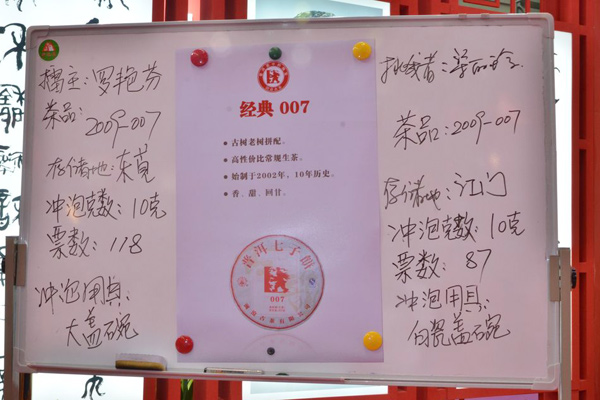 擂主:罗艳芬
茶品:
2009-007
存储地:东莞
冲泡克数:10克
票数:118
冲泡用具:
大盖碗
经典 007
古树老树拼配。
高性价比常规生茶。
始制于2002年,10年历史。
香、甜、回甘。
普洱七子饼
007
挑战者:
茶品:2009-007
存储地:江门
冲泡克数:10克
票数:87
冲泡用具:
白瓷盖碗